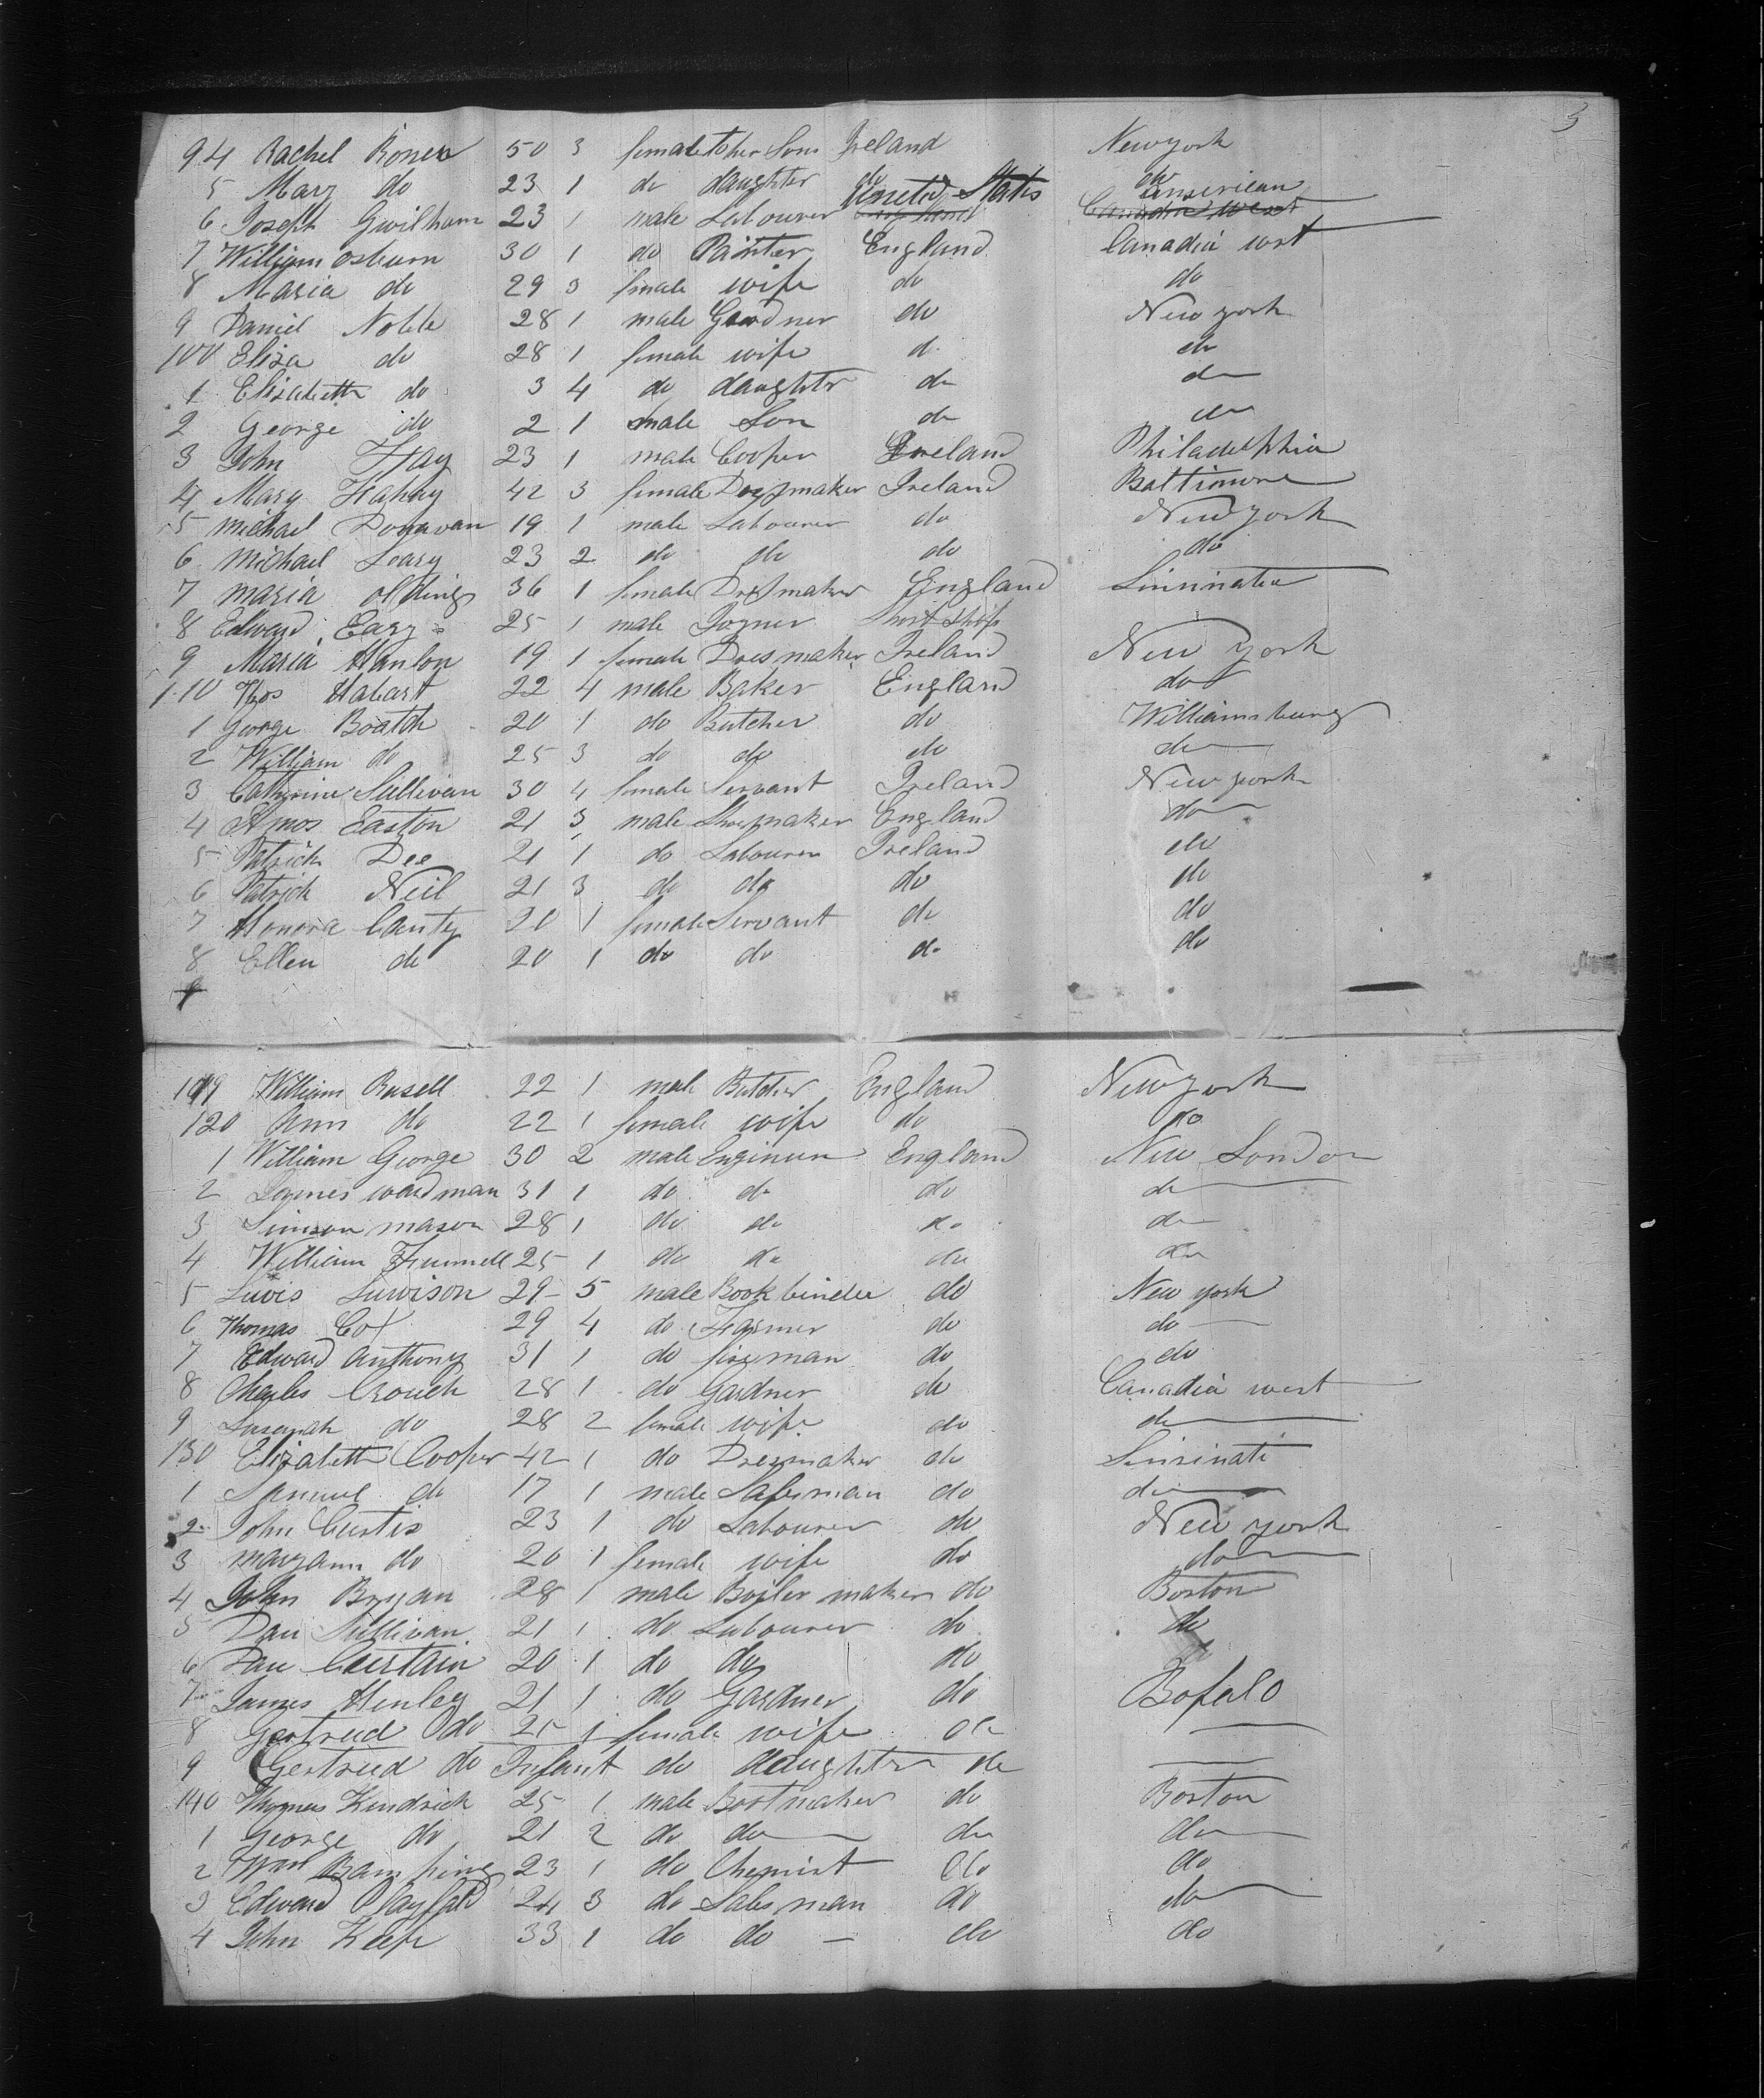 3
94 Rachel Roner 50 3 female to her Sons Ireland New york
5 Mary do 23 1 do daughter do do
6 Joseph Gwilham 23 1 male Labourer United States american
7 William Osburn 30 1 do Painter England Canadia west
8 Maria do 29 3 female wife do do
9 Daniel Noble 28 1 male Gardner do New york
100 Eliza do 28 1 female wife d. do
1 Elizabeth do 3 4 do daughter do do
2 George do 2 1 male Son do do
3 John Hay 23 1 male Cooper Ireland Philadelphia
4 Mary Fahay 42 3 female Dressmaker Ireland Baltimore
5 michael Donavan 19 1 male Labourer do New york
6 Michael Leary 23 2 do do do do
7 maria oldings 36 1 female Dressmaker England Sinsinatia
8 Edward Eary 25 1 male Joyner
9 Maria Hanlon 19 1 female Dresmaker Ireland New york
110 Thos Habart 22 4 male Baker England do
1 George Boatch 20 1 do Butcher do Williamsburg
2 William do 25 3 do do do do
3 Catherine Sullivan 30 4 female Servant Ireland New york
4 Amos Easton 21 3 male Shoemaker England do
5 Patrick Dee 21 1 do Labourer Ireland do
6 Patrick Neil 21 3 do do do do
7 Honora Canty 20 1 female Servant do do
8 Ellen do 20 1 do do do do
9
119 William Rusell 22 1 male Butcher England New york
120 Ann do 22 1 female wife do do
1 William George 30 2 male Engineer England New London
2 James wardman 31 1 do do do do
3 Simson mason 28 1 do do do do
4 William Frunnell 25 1 do do do do
5 Luvis Luwison 29 5 male Book binder do New york
6 Thomas Cox 29 4 do Farmer do do
7 Edward anthony 31 1 do fireman do do
8 Charles Crouch 28 1 do Gardner do Canadia west
9 Susenah do 28 2 female wife do do
130 Elizabeth Cooper 42 1 do Dresmaker do Sinsinati
1 Samuel do 17 1 male Salesman do do
2 John Curtis 23 1 do Labourer do New york
3 maryann do 20 1 female wife do do
4 John Bryan 28 1 male Boiler maker do Boston
5 Dan Sullivan 21 1 do Labourer do do
6 Dan Curtain 20 1 do do do do
7 James Henley 21 1 do Gardner do Bofalo
8 Gertrud do 25 1 female wife do
9 Gertrud do Infant do daughter do
140 Thomas Kendrick 25 1 male Bootmaker do Boston
1 George do 21 2 do do do do
2 Wm Bamping 23 1 do Chemist do do
3 Edward Playfald 24 3 do Sales man do do
4 John Keefe 33 1 do do do do